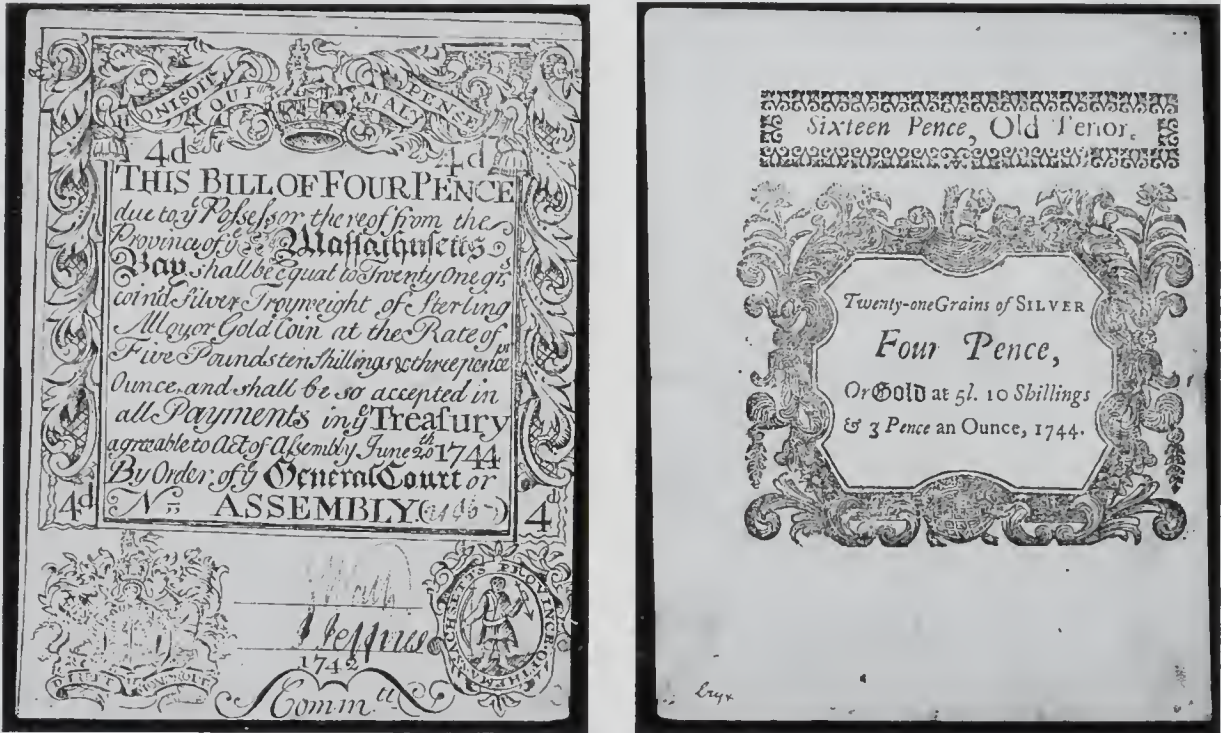 ONI SOIT QUI MAL Y PENSE
4d 4d
THIS BILL OF FOUR PENCE
due to yͤ Poſseſsor thereof from the
Province of yͤ Maſſachuſetts
Bay shall be Equal to Twenty One gr.
coin'd Silver Troyweight of Sterling
Alloy or Gold Coin at the Rate of
Five Pounds ten Shillings & three pence pr
Ounce, and shall be so accepted in
all Payments in yͤ Treaſury
agreable to Act of Aſsembly June 20th 1744
By Order of yͤ General Court or
4d No. ASSEMBLY 4d
DIEU ET MON DROIT
Jeffries
1742
Commtt
PROVINCE OF THE MASSACHSETTS
Sixteen Pence, Old Tenor.
Twenty-one Grains of SILVER
Four Pence,
Or Gold at 5l. 10 Shillings
& 3 Pence an Ounce, 1744.